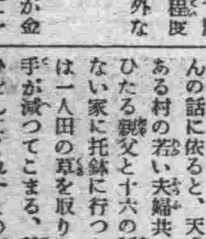 程度
外な
んの話に依ると、天
ある村の若い夫婦共
ひたる親父と十六の
ない家に托鉢に行つ
は一人田の草を取り
手が減つてこまる、
が金